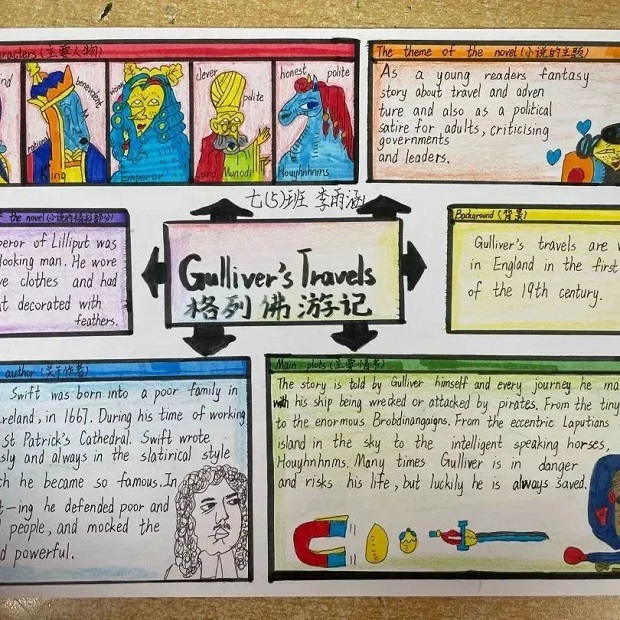 aracters (主要人物)
benevolent
King
Emperor
clever
polite
Lord Munodi
honest polite
Houyhnhnms
The theme of the novel (小说的主题)
As a young readers fantasy
story about travel and adven
ture and also as a political
satire for adults, criticising
governments
and leaders.
七(5)班 李雨涵
Gulliver's Travels
格列佛游记
of the novel (小说的精彩部分)
peror of Lilliput was
looking man. He wore
ve clothes and had
t decorated with
feathers.
Background (背景)
Gulliver's travels are w
in England in the first
of the 19th century.
author (关于作者)
Swift was born into a poor family in
reland, in 1667. During his time of working
St Patrick's Cathedral. Swift wrote
sly and always in the slatirical style
ch he became so famous. In
t-ing he defended poor and
people, and mocked the
d powerful.
Main plots (主要情节)
The story is told by Gulliver himself and every journey he ma
with his ship being wrecked or attacked by pirates. From the tiny
to the enormous Brobdinangaigns. From the eccentric Laputians
island in the sky to the intelligent speaking horses,
Houyhnhnms. Many times Gulliver is in danger
and risks his life, but luckily he is always saved.